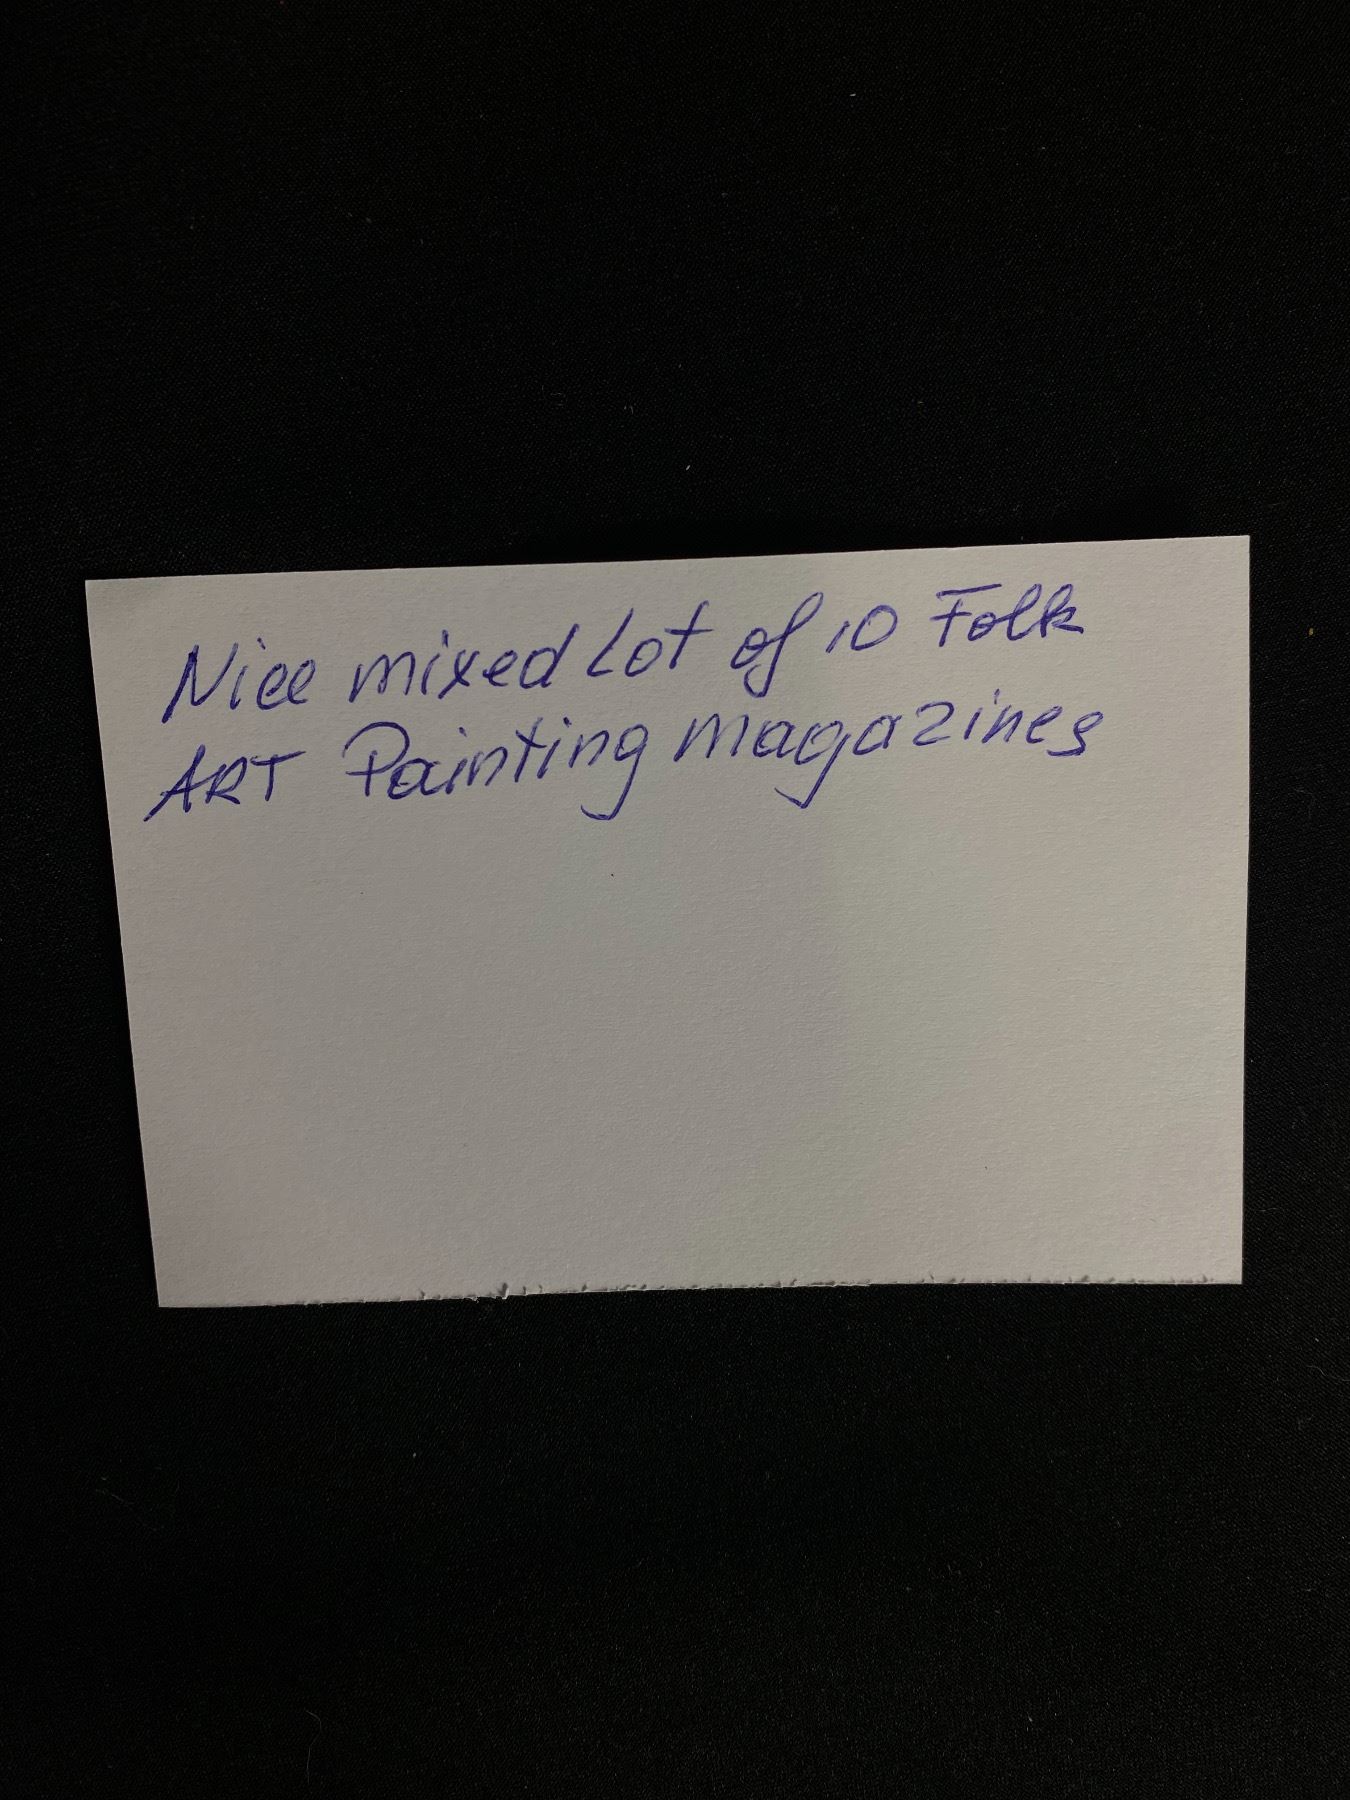 Nice mixed Lot of 10 Folk
ART Painting magazines